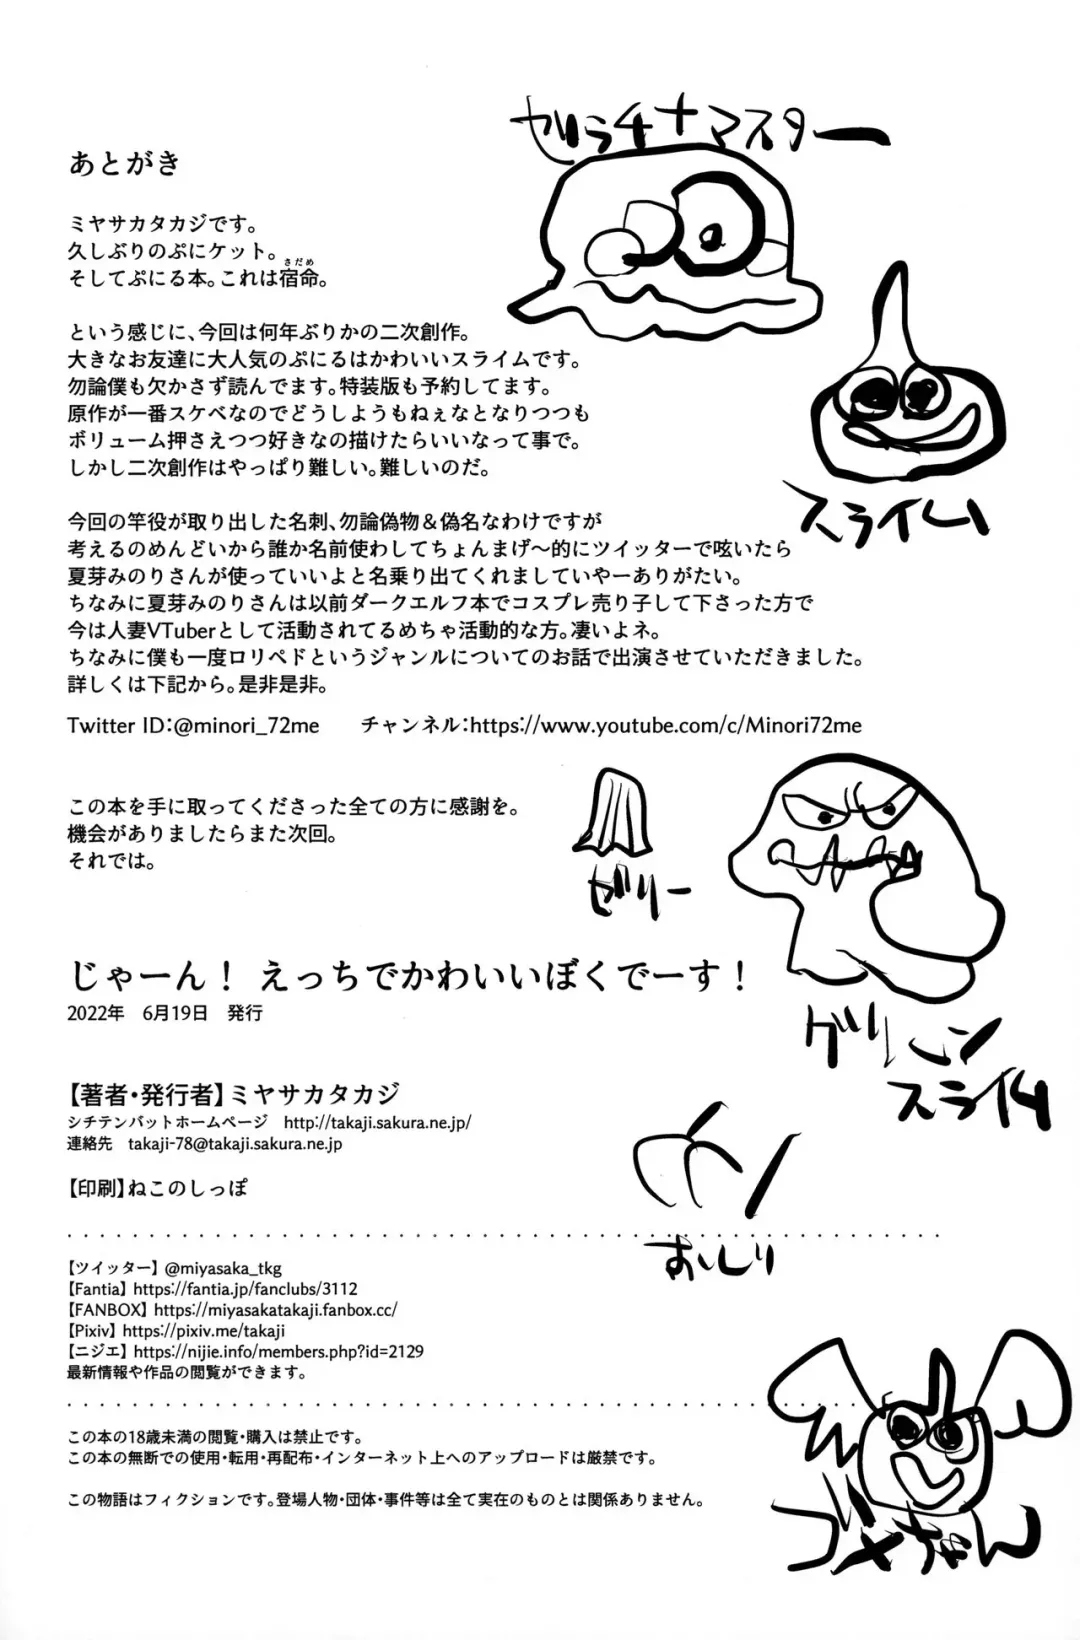 あとがき
ミヤサカタカジです。
久しぶりのぷにケット。
そしてぷにる本。これは宿命。
さだめ
という感じに、今回は何年ぶりかの二次創作。
大きなお友達に大人気のぷにるはかわいいスライムです。
勿論僕も欠かさず読んでます。特装版も予約してます。
原作が一番スケベなのでどうしようもねぇなとなりつつも
ボリューム押さえつつ好きなの描けたらいいなって事で。
しかし二次創作はやっぱり難しい。難しいのだ。
今回の竿役が取り出した名刺、勿論偽物＆偽名なわけですが
考えるのめんどいから誰か名前使わしてちょんまげ〜的にツイッターで呟いたら
夏芽みのりさんが使っていいよと名乗り出てくれましていやーありがたい。
ちなみに夏芽みのりさんは以前ダークエルフ本でコスプレ売り子して下さった方で
今は人妻VTuberとして活動されてるめちゃ活動的な方。凄いよネ。
ちなみに僕も一度ロリペドというジャンルについてのお話で出演させていただきました。
詳しくは下記から。是非是非。
Twitter ID：@minori_72me　チャンネル：https://www.youtube.com/c/Minori72me
この本を手に取ってくださった全ての方に感謝を。
機会がありましたらまた次回。
それでは。
じゃーん！ えっちでかわいいぼくでーす！
2022年　6月19日　発行
【著者・発行者】ミヤサカタカジ
シチテンバットホームページ　http://takaji.sakura.ne.jp/
連絡先　takaji-78@takaji.sakura.ne.jp
【印刷】ねこのしっぽ
【ツイッター】 @miyasaka_tkg
【Fantia】 https://fantia.jp/fanclubs/3112
【FANBOX】 https://miyasakatakaji.fanbox.cc/
【Pixiv】 https://pixiv.me/takaji
【ニジエ】 https://nijie.info/members.php?id=2129
最新情報や作品の閲覧ができます。
この本の18歳未満の閲覧・購入は禁止です。
この本の無断での使用・転用・再配布・インターネット上へのアップロードは厳禁です。
この物語はフィクションです。登場人物・団体・事件等は全て実在のものとは関係ありません。
ゼラチナマスター
スライム
ゼリー
グリーン
スライム